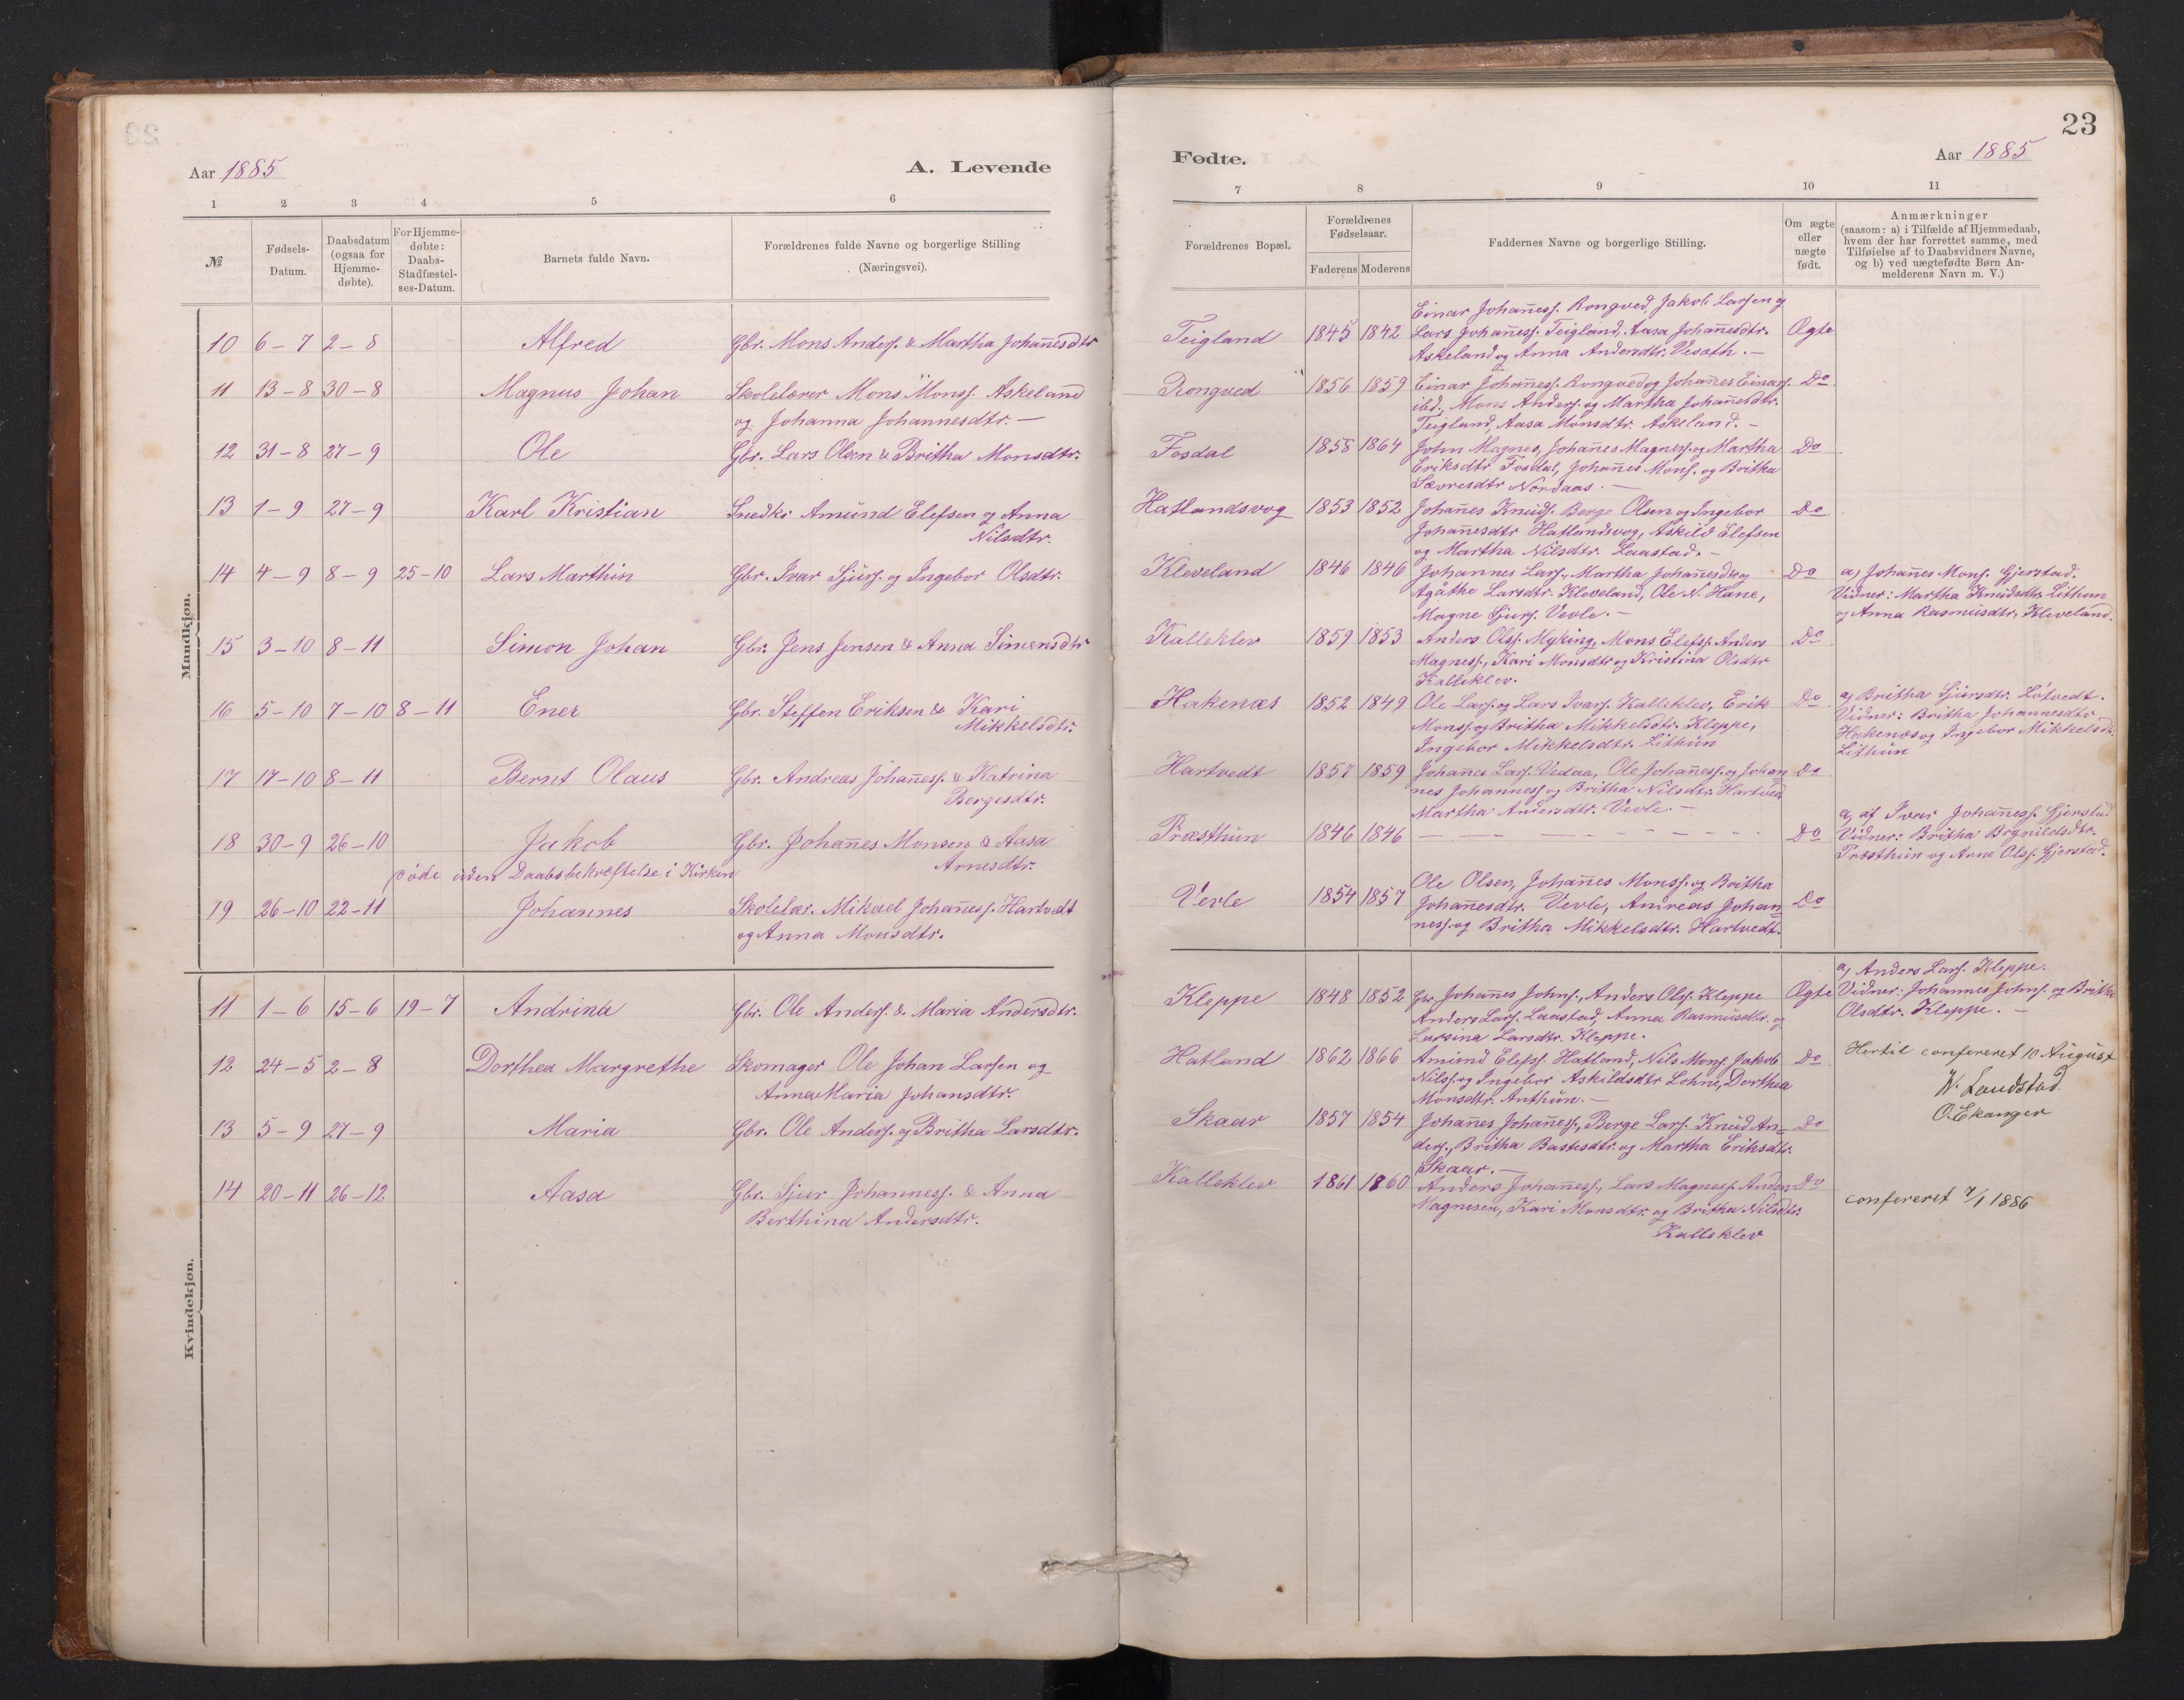 23
Aar 1885
A. Levende
Fødte.
Aar 1885
1 2 3 4 5 6
7 8 9 10 11
№
Fødsels-Datum.
Daabsdatum (ogsaa for Hjemme-døbte).
For Hjemme-døbte: Daabs-Stadfæstel-ses-Datum.
Barnets fulde Navn.
Forældrenes fulde Navne og borgerlige Stilling
(Næringsvei).
Forældrenes Bopæl.
Forældrenes Fødselsaar.
Faderens Moderens
Faddernes Navne og borgerlige Stilling.
Om ægte eller uægte født.
Anmærkninger
(saasom: a) i Tilfælde af Hjemmedaab,
hvem der har forrettet samme, med
Tilføielse af to Daabsvidners Navne,
og b) ved uægtefødte Børn An-
melderens Navn m. V.)
Mandkjøn.
10 6-7 2-8 Alfred Gbr. Mons Anders. & Martha Johan̄esdtr
Teigland 1845 1842 Ægte
Einar Johan̄ess. Rongved, Jakob Larsen og
Lars Johan̄ess. Teigland, Aasa Johan̄esdtr.
Askeland og Anna Andersdtr. Vesøth. —
11 13-8 30-8 Magnus Johan Skolelærer Mons Monss. Askeland
og Johanna Johannesdtr. —
Rongved 1856 1859 Do
Einar Johan̄ess. Rongved og Johan̄es Einars.
ibd., Mons Anders. og Martha Johan̄esdtr.
Teigland, Aasa Monsdtr. Askeland. —
12 31-8 27-9 Ole Gbr. Lars Olsen & Britha Monsdtr.
Fosdal 1858 1864 Do
John Magnes, Johan̄es Magness. og Martha
Eriksdtr Fosdal, Johan̄es Mons. og Britha
Sævresdtr Nordaas. —
13 1-9 27-9 Karl Kristian Snedkr Amund Elefsen og Anna
Nilsdtr.
Hatlandsvog 1853 1852 Do
Johan̄es Knuds. Berge Olsen og Ingebor
Johan̄esdtr Hatlandsvog, Askild Elefsen
og Martha Nilsdtr. Laastad. —
14 4-9 8-9 25-10 Lars Marthin Gbr. Ivar Sjurs. og Ingebor Olsdtr.
Kleveland 1846 1846 Do
Johannes Lars., Martha Johan̄esdtr og
Agathe Larsdtr. Kleveland, Ole N. Hane,
Magne Sjurs. Vevle. —
a) Johan̄es Mons. Gjerstad.
Vidner: Martha Knudsdtr. Lithun
og Anna Rasmusdtr. Kleveland.
15 3-10 8-11 Simon Johan Gbr. Jens Jensen & Anna Simensdtr
Kalleklev 1859 1853 Do
Anders Ols. Myking, Mons Elefs. Anders
Magness., Kari Monsdtr og Kristina Olsdtr
Kalleklev.
16 5-10 7-10 8-11 Ener Gbr. Steffen Eriksen & Kari
Mikkelsdtr.
Hakenæs 1852 1849 Do
Ole Lars. og Lars Ivars. Kalleklev, Erik
Monss. og Britha Mikkelsdtr. Kleppe,
Ingebor Mikkelsdtr. Lithun
a) Britha Sjursdtr. Løtvedt.
Vidner: Britha Johannesdtr
Hakenæs og Ingebor Mikkelsdtr.
Lithun
17 17-10 8-11 Bernt Olaus Gbr. Andreas Johan̄ess. & Katrina
Bergesdtr.
Hartvedt 1857 1859 Do
Johan̄es Lars. Vedaa, Ole Johan̄ess. og Johan
nes Johanness. og Britha Nilsdtr. Hartved
Martha Andersdtr. Vevle. —
18 30-9 26-10 Jakob Gbr. Johan̄es Monsen & Aasa
Arnesdtr.
døde uden Daabsbekræftelse i Kirken
Præsthun 1846 1846 — — — — Do
a) af Ivar Johan̄ess. Gjerstad
Vidner: Britha Brynildsdtr.
Præsthun og Arne Ols. Gjerstad.
19 26-10 22-11 Johannes Skolelær. Mikael Johan̄ess. Hartvedt
og Anna Monsdtr.
Vevle 1854 1857 Do
Ole Olsen, Johan̄es Monss. og Britha
Johan̄esdtr. Vevle, Andreas Johan
ness. og Britha Mikkelsdtr. Hartvedt.
Kvindekjøn.
11 1-6 15-6 19-7 Andrina Gbr. Ole Anders. & Maria Andersdtr.
Kleppe 1848 1852 Ægte
Gbr. Johan̄es Johns., Anders Ols. Kleppe
Anders Lars. Laastad, Anna Rasmusdtr. og
Larsina Larsdtr. Kleppe.
a) Anders Lars. Kleppe.
Vidner: Johannes Johns. og Britha
Olsdtr. Kleppe. —
12 24-5 2-8 Dorthea Margrethe Skomager Ole Johan Larsen og
Anna Maria Johansdtr.
Hatland 1862 1866 Do
Amund Elefs. Hatland, Nils Mons. Jakob
Nilss. og Ingebor Askildsdtr Lohne, Dorthea
Monsdtr. Anthun. —
Hertil confereret 10 August
W. Landstad
O. Ekanger
13 5-9 27-9 Maria Gbr. Ole Anders. og Britha Larsdtr.
Skaar 1857 1854 Do
Johan̄es Johan̄ess., Berge Lars. Knud An-
ders., Britha Bastesdtr. og Martha Eriksdtr.
Skaar. —
14 20-11 26-12 Aasa Gbr. Sjur Johanness. & Anna
Berthina Andersdtr.
Kalleklev 1861 1860 Do
Anders Johan̄ess., Lars Magness. Anders
Magnesen, Kari Monsdtr. og Britha Nilsdtr.
Kalleklev
confereret 7/1 1886